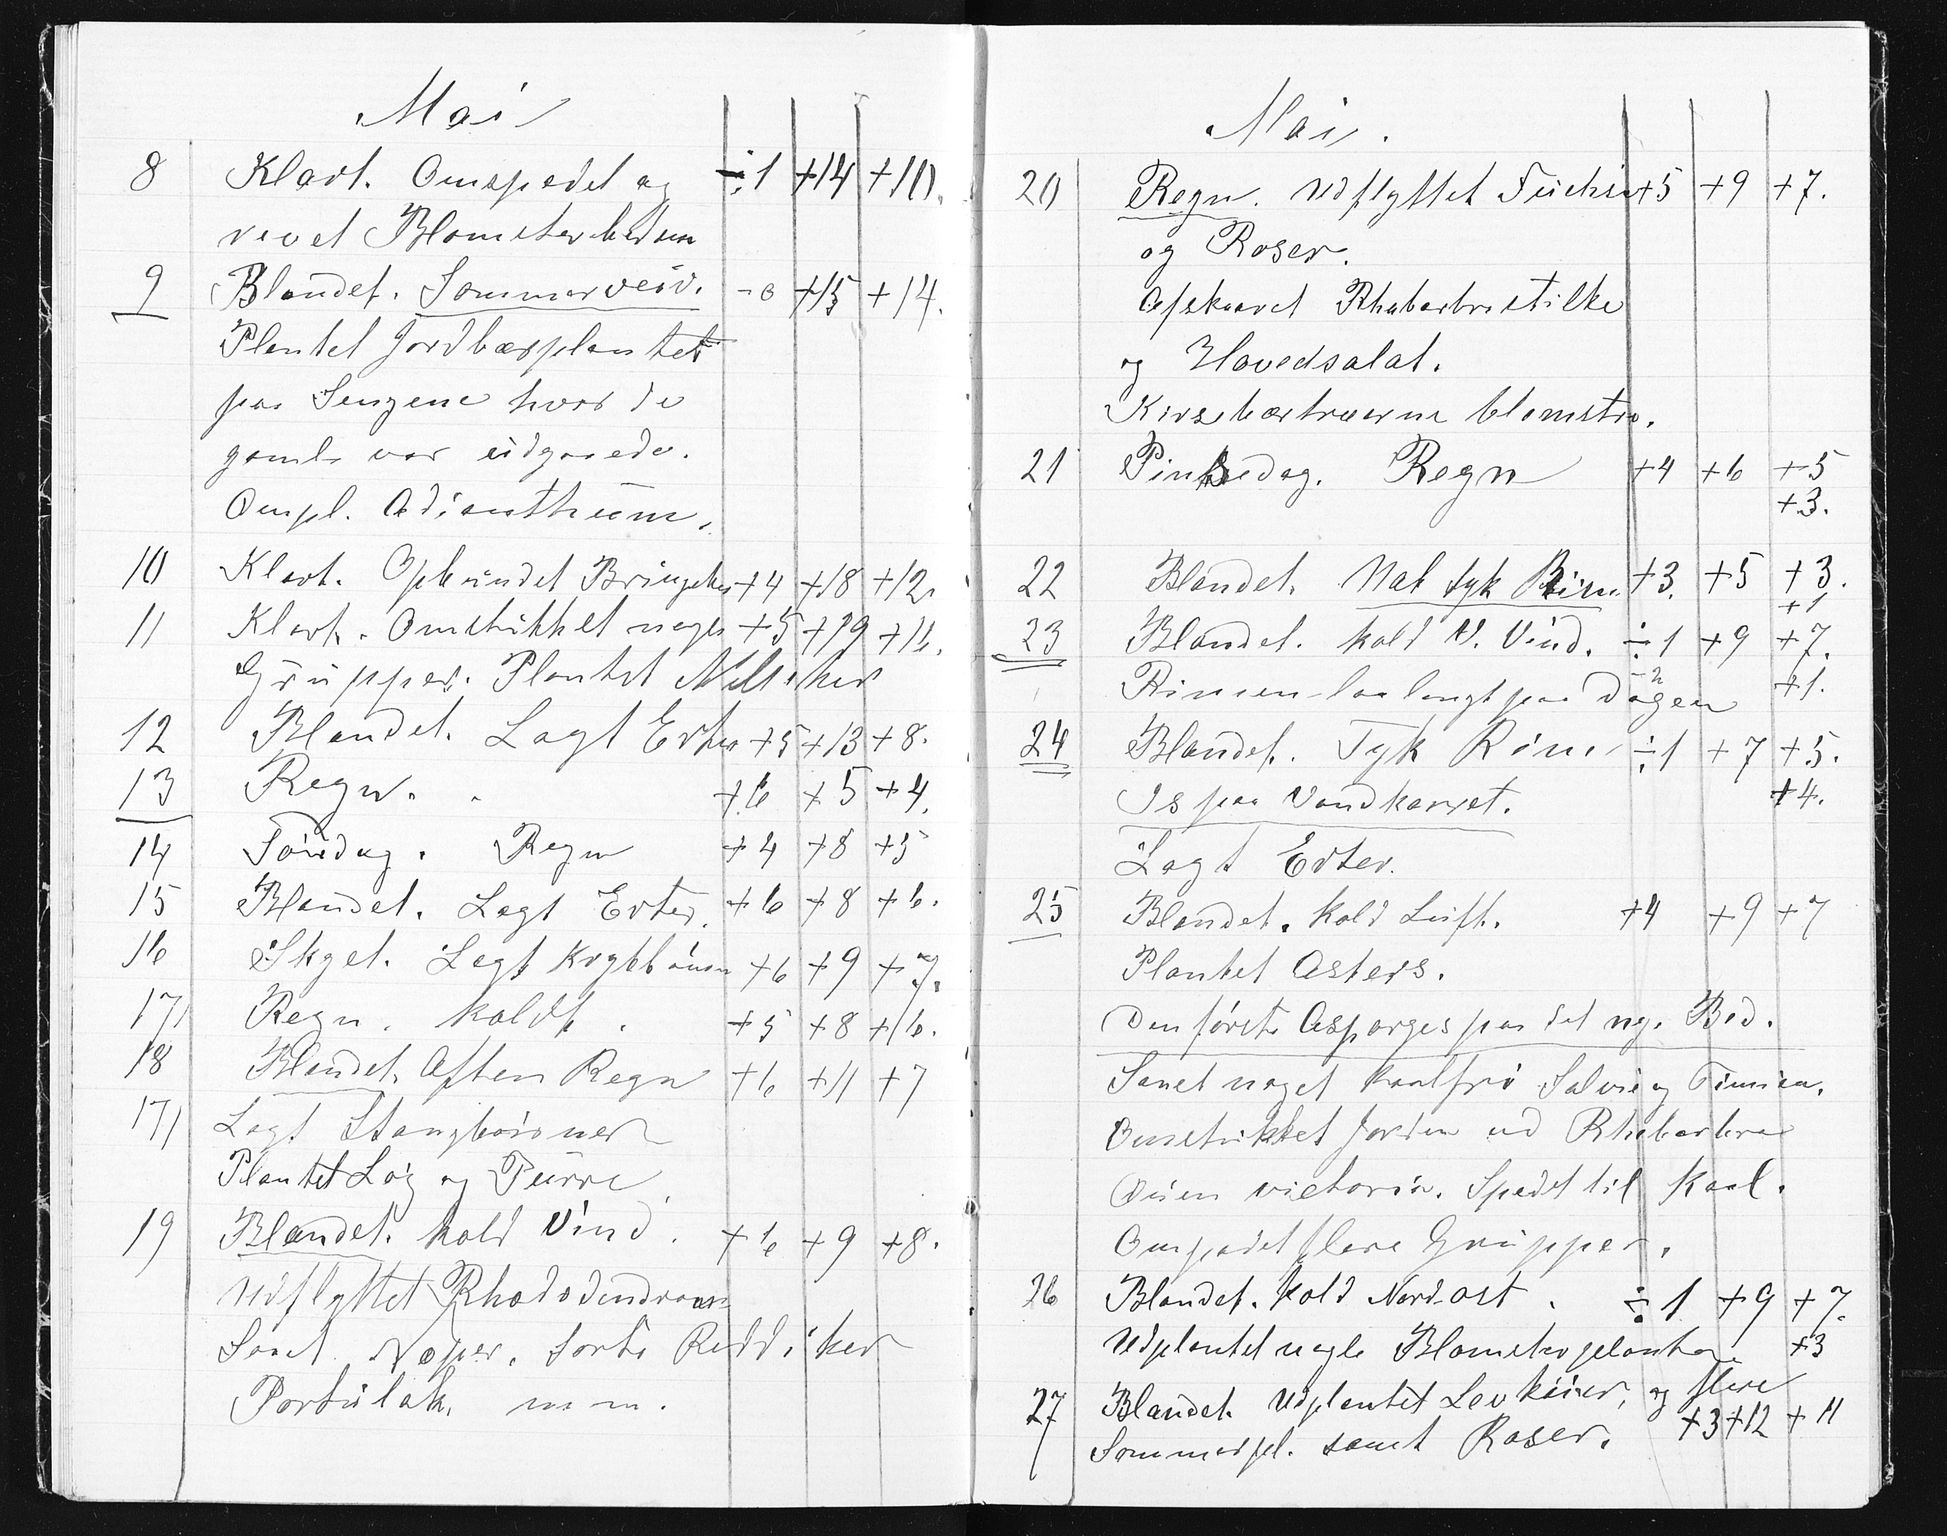 Mai
8 Klart. Omspadet og ÷1 +14 +10.
revet Blomsterbedene
9 Blandet. Sommerveir. -0 +15 +14.
Plantet Jordbærplanter
paa Sengene hvor de
gamle var udgaaede.
Ompl. Adianthum.
10 Klart. Opbundet Bringebær +4 +18 +12.
11 Klart. Omstikket nogle +5 +19 +16.
Grupper. Plantet Nelliker
12 Blandet. Lagt Erter +5 +13 +8.
13 Regn. +6 +5 +4.
14 Søndag. Regn +4 +8 +5
15 Blandet. Lagt Erter. +6 +8 +6.
16 Skyet. Lagt Krybbønner +6 +9 +7.
17 Regn. koldt. +5 +8 +6.
18 Blandet. Aften Regn +6 +11 +7
17 Lagt Stangbønner
Plantet Løg og Purre
19 Blandet. kold Vind. +6 +9 +8.
Udflyttet Rhododendroner
Saaet Næper, sorte Reddiker
Portulak, m m.
Mai.
20 Regn. Udflyttet Fuchsia +5 +9 +7.
og Roser.
Afskaaret Rhabarbrastilke
og Hovedsalat.
Kirsebærtræerne blomstre.
21 Pinsedag. Regn +4 +6 +5
+3.
22 Blandet. Nat tyk Riim +3. +5 +3.
+1
23 Blandet. kold N. Vind. ÷1 +9 +7.
Rimen laa langt paa Dagen +1.
24 Blandet. Tyk Rim ÷1 +7 +5.
Is paa Vandkarret. +4.
Lagt Erter.
25 Blandet. Kold Luft. +4 +9 +7
Plantet Asters.
Den første Asparges paa det nye Bed.
Saaet noget Kaalfrø Salvie og Timian.
Omstikket Jorden ved Rhabarbra
Queen victoria. Spadet til Kaal.
Omspadet flere Grupper.
26 Blandet. kold Nord-ost. ÷1 +9 +7.
Udplantet nogle Blomsterplanter +3
27 Blandet. Udplantet Levkøier, og flere
Sommerpl. samt Roser. +3 +12 +11